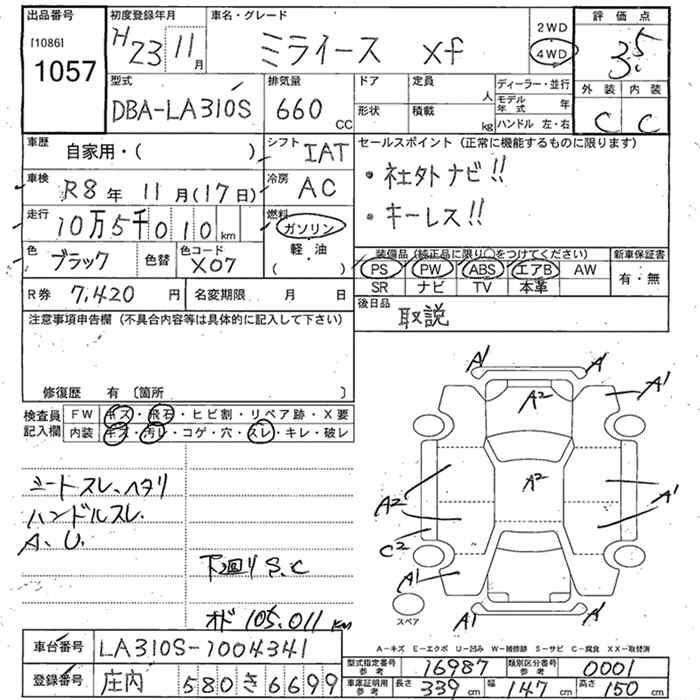 出品番号 初度登録年月 車名・グレード 評価点
[1086] 1057 H23 11月 ミライース xf 2WD 4WD 3.5
型式 排気量 ドア 定員 人 ディーラー・並行 外装 内装
DBA-LA310S 660 CC 形状 積載 kg モデル年式 年 ハンドル 左・右 C C
車歴 自家用・( ) シフト IAT セールスポイント(正常に機能するものに限ります)
車検 R8年 11月(17日) 冷房 AC ・社外ナビ!!
走行 10万5千010km 燃料 ガソリン ・キーレス!!
色 ブラック 色替 色コード X07 軽・油 ( )
装備品(純正品に限り○をつけてください) 新車保証書
PS PW ABS エアB AW 有・無
SR ナビ TV 本革
R券 7,420円 名変期限 月 日 後日品 取説
注意事項申告欄(不具合内容等は具体的に記入して下さい)
修復歴 有 〔箇所 〕
検査員記入欄 FW キズ・飛石・ヒビ割・リペア跡・X要
内装 キズ・汚レ・コゲ・穴・スレ・キレ・破レ
シートスレ、ヘタリ
ハンドルスレ.
A.U.
下廻りS.C
オド 105.011km
A1 A1
A2 A1
A2
A2 A1
C2
A1
A1 A1
スペア
A-キズ E-エクボ U-凹み W-補修跡 S-サビ C-腐食 XX-取替済
車台番号 LA310S-1004341
登録番号 庄内 580 き 6699
型式指定番号 参考 16987 類別区分番号 参考 0001
車庫証明用 参考 長さ 339cm 幅 147cm 高さ 150cm